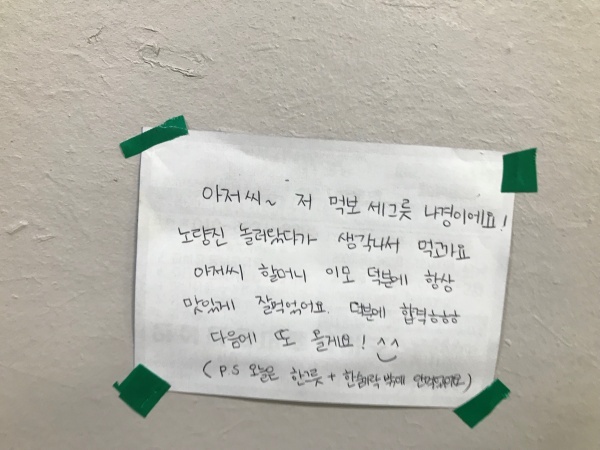 아저씨~ 저 먹보 세그릇 나경이에요!
노량진 놀러왔다가 생각나서 먹고가요
아저씨 할머니 이모 덕분에 항상
맛있게 잘먹었어요. 덕분에 합격ㅎㅎㅎ
다음에 또 올게요! ^^
(PS 오늘은 한그릇 + 한숟가락 밖에 안먹었어요)